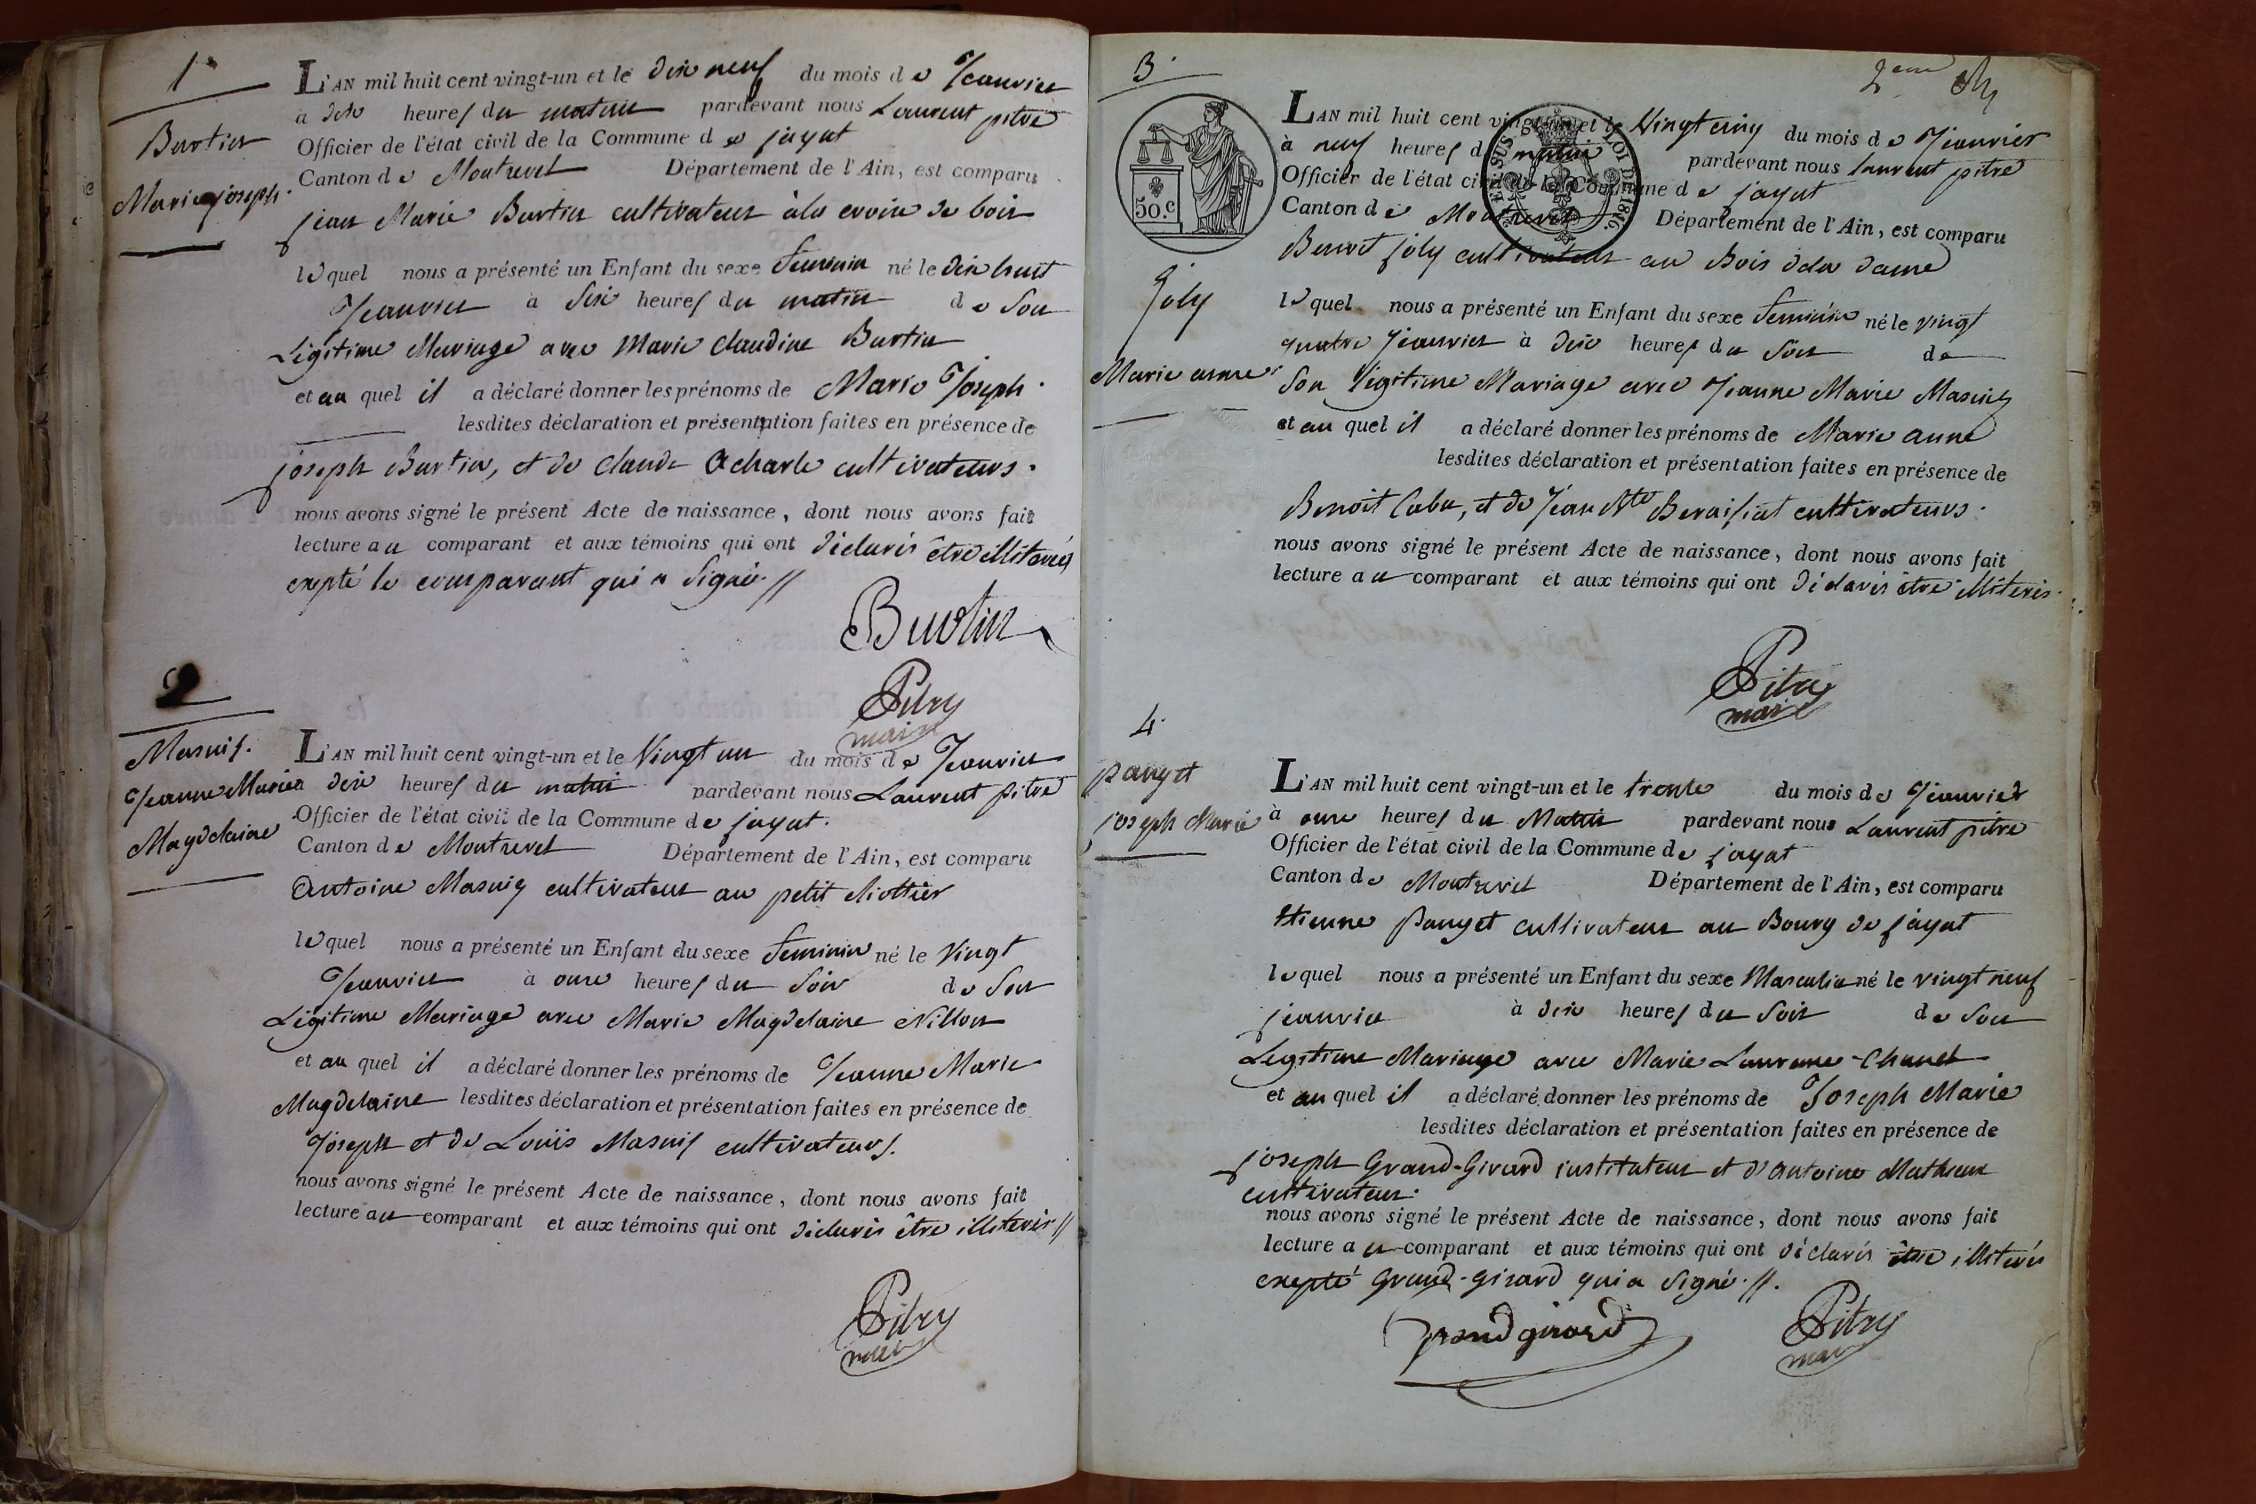 1
Burtin
Marie joseph.
L'AN mil huit cent vingt-un et le dix neuf du mois de Jeanvier
à dix heures du matin pardevant nous Laurent pitre
Officier de l'état civil de la Commune de jayat
Canton de Montrevel Département de l'Ain, est comparu
jean Marie Burtin cultivateur à la croix de bois
lequel nous a présenté un Enfant du sexe feminin né le dix huit
Jeanvier à six heures du matin de Son
Légitime Mariage avec Marie Claudine Burtin
et au quel il a déclaré donner les prénoms de Marie Joseph.
lesdites déclaration et présentation faites en présence de
joseph Burtin, et de Claude Acharle cultivateurs.
nous avons signé le présent Acte de naissance, dont nous avons fait
lecture au comparant et aux témoins qui ont déclarés être illiterés
expté le comparant qui a Signé.//
Burtin
Pitre
maire
2
Masuis.
Jeanne Marie
Magdelaine
L'AN mil huit cent vingt-un et le Vingt un du mois de Jeanvier
à dix heures du matin pardevant nous Laurent pitre
Officier de l'état civil de la Commune de jayat.
Canton de Montrevel Département de l'Ain, est comparu
Antoine Masuis cultivateur au petit
lequel nous a présenté un Enfant du sexe feminin né le Vingt
Jeanvier à onze heures du Soir de Son
Légitime Mariage avec Marie Magdelaine Nillon
et au quel il a déclaré donner les prénoms de Jeanne Marie
Magdelaine lesdites déclaration et présentation faites en présence de
Joseph et de Louis Masuis cultivateurs.
nous avons signé le présent Acte de naissance, dont nous avons fait
lecture au comparant et aux témoins qui ont déclarés être illiterés//
Pitre
maire
3.
2eme
50.c
LOI DE 1816.
joly
Marie anne
L'AN mil huit cent vingt-un et le Vingt cinq du mois de Jeanvier
à neuf heures du matin pardevant nous laurent pitre
Officier de l'état civil de la Commune de jayat
Canton de Montrevel Département de l'Ain, est comparu
Benoit joly cultivateur au Bois de la dame
lequel nous a présenté un Enfant du sexe feminin né le vingt
quatre Jeanvier à dix heures du Soir de
Son légitime Mariage avec Jeanne Marie Masuis
et au quel il a déclaré donner les prénoms de Marie anne
lesdites déclaration et présentation faites en présence de
Benoit Cabu, et de Jean Bte Beraisiat cultivateurs.
nous avons signé le présent Acte de naissance, dont nous avons fait
lecture au comparant et aux témoins qui ont déclarés être illiterés.
Pitre
maire
4.
pauget
joseph Marie
L'AN mil huit cent vingt-un et le trente du mois de Jeanvier
à onze heures du Matin pardevant nous Laurent pitre
Officier de l'état civil de la Commune de jayat
Canton de Montrevel Département de l'Ain, est comparu
Etienne Pauget cultivateur au Bourg de jayat
lequel nous a présenté un Enfant du sexe Masculin né le vingt neuf
jeanvier à dix heures du Soir de Son
Légitime Mariage avec Marie Laurence Chanel
et au quel il a déclaré donner les prénoms de Joseph Marie
lesdites déclaration et présentation faites en présence de
joseph Grand-Girard instituteur et d'Antoine Mathieux
cultivateur.
nous avons signé le présent Acte de naissance, dont nous avons fait
lecture au comparant et aux témoins qui ont déclarés être illiterés
expté Grand-Girard qui a Signé.//.
grand girard
Pitre
maire